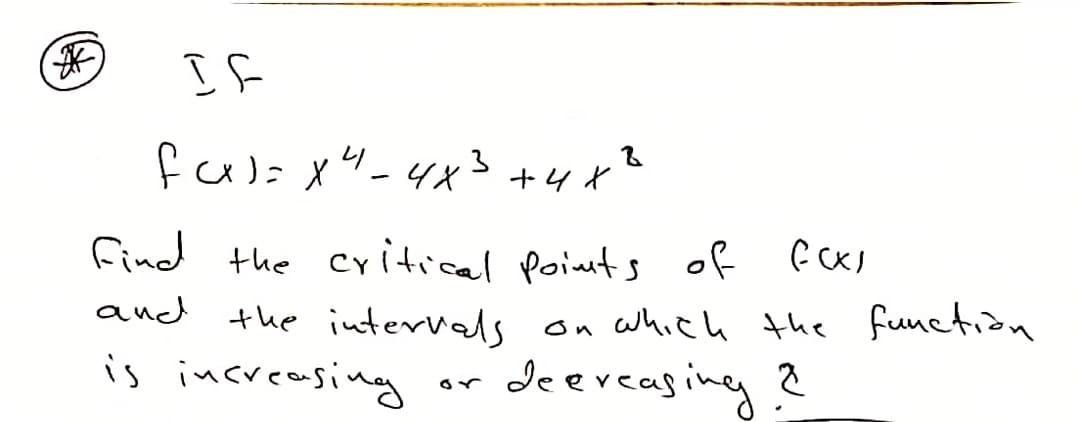 IF
f(x) = x⁴ - 4x³ + 4x²
Find the critical points of f(x)
and the intervals on which the function
is increasing or decreasing ?